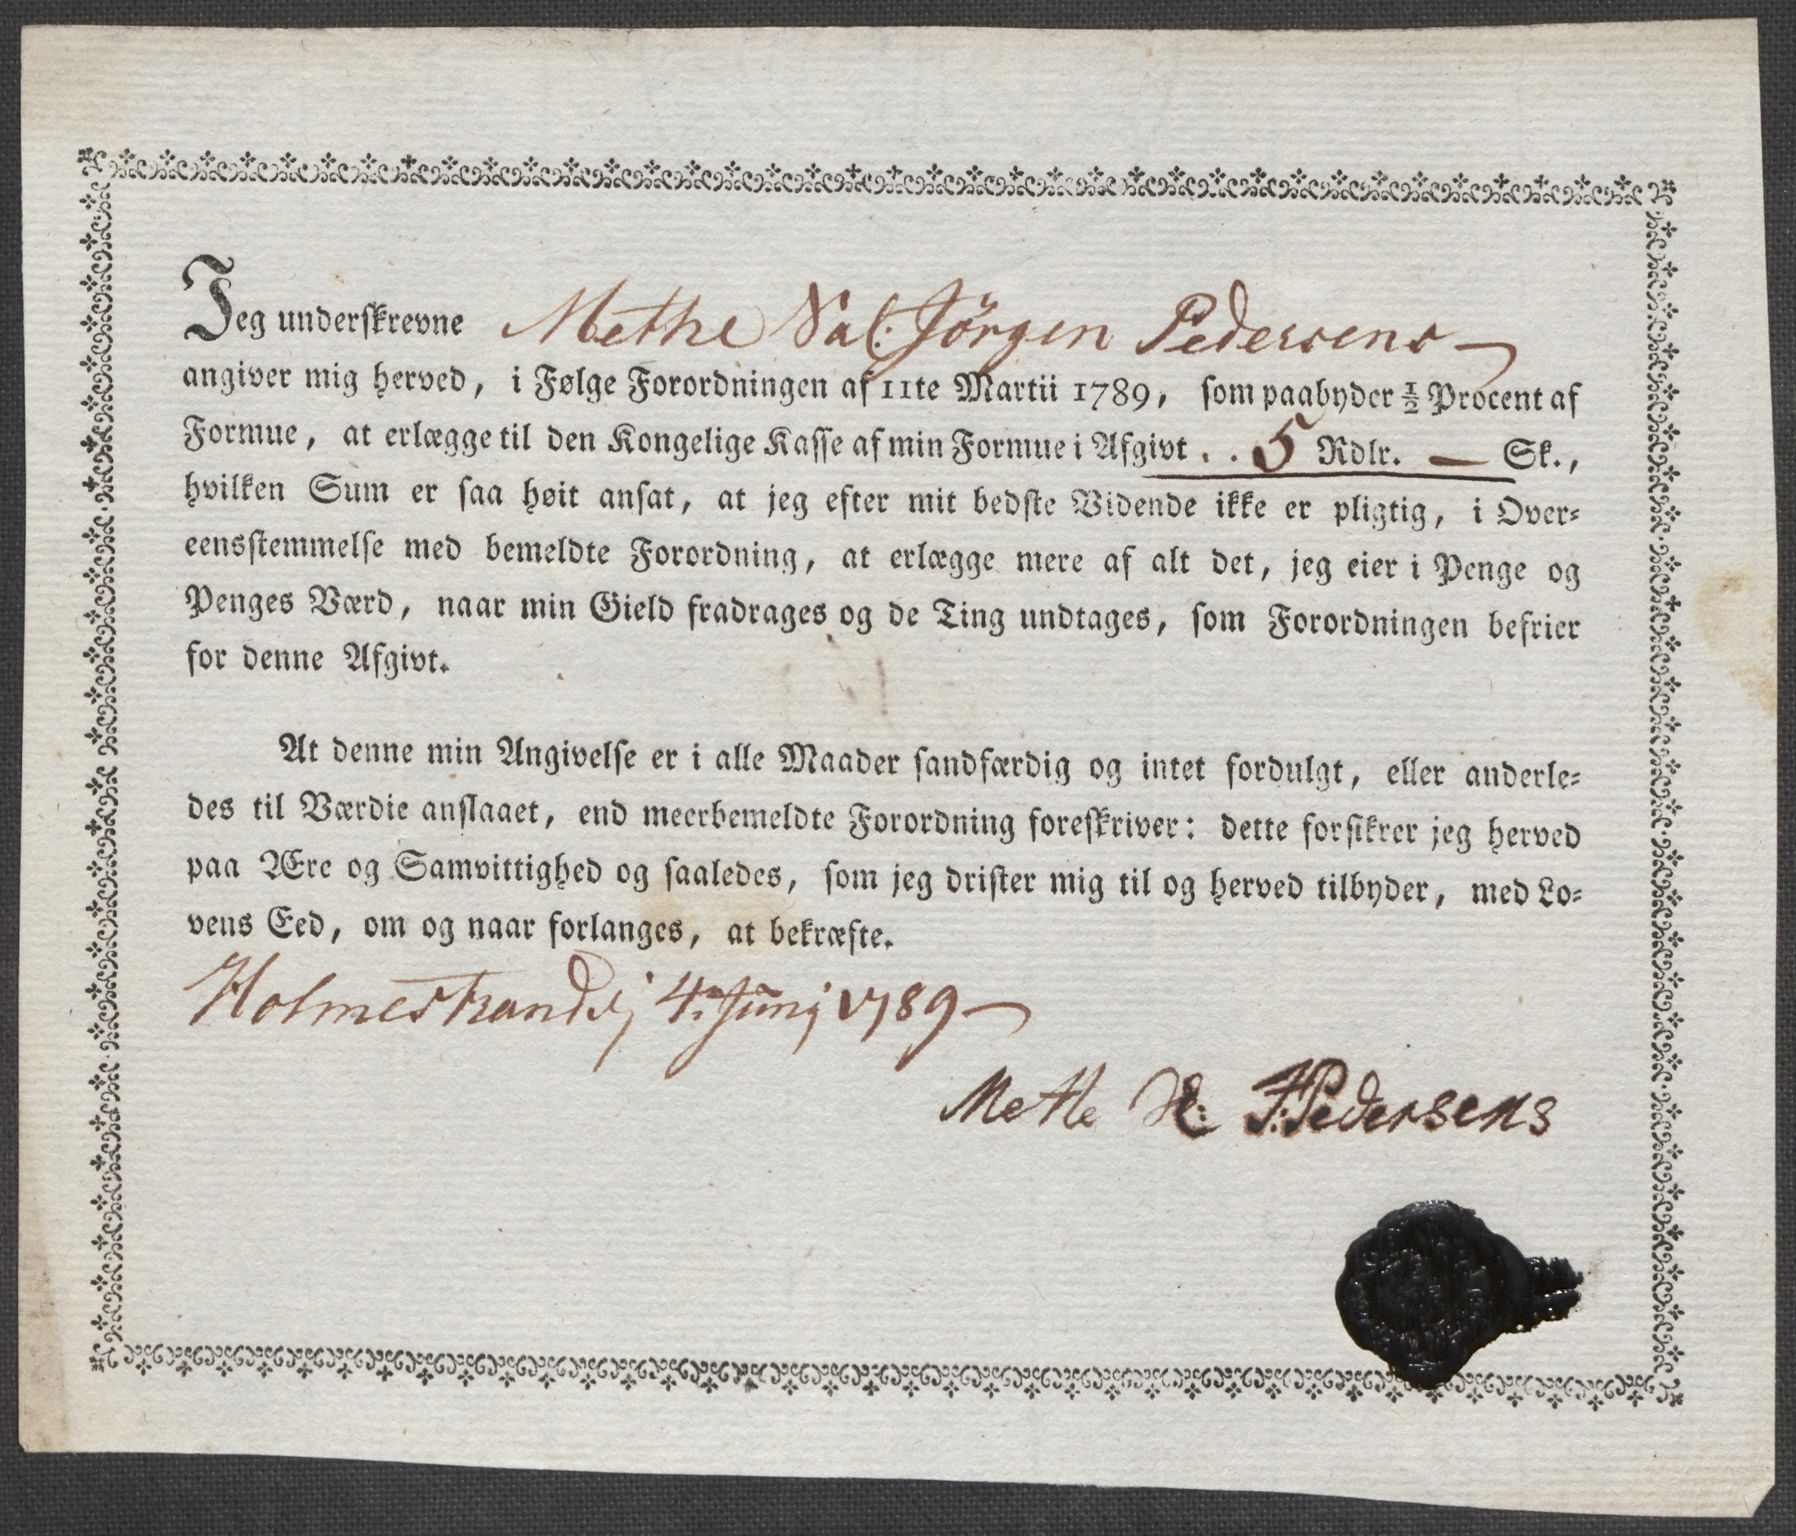 Jeg underskrevne Methe Sal. Jörgen Pedersens
angiver mig herved, i Følge Forordningen af 11te Martii 1789, som paabyder ½ Procent af
Formue, at erlægge til den Kongelige Kasse af min Formue i Afgivt . . 5 Rdlr. — Sk.,
hvilken Sum er saa høit ansat, at jeg efter mit bedste Vidende ikke er pligtig, i Over=
eensstemmelse med bemeldte Forordning, at erlægge mere af alt det, jeg eier i Penge og
Penges Værd, naar min Gield fradrages og de Ting undtages, som Forordningen befrier
for denne Afgivt.
At denne min Angivelse er i alle Maader sandfærdig og intet fordulgt, eller anderle=
des til Værdie anslaaet, end meerbemeldte Forordning foreskriver: dette forsikrer jeg herved
paa Ære og Samvittighed og saaledes, som jeg drister mig til og herved tilbyder, med Lo=
vens Eed, om og naar forlanges, at bekræfte.
Holmestrand 4. Junj 1789
Methe J: Pedersens